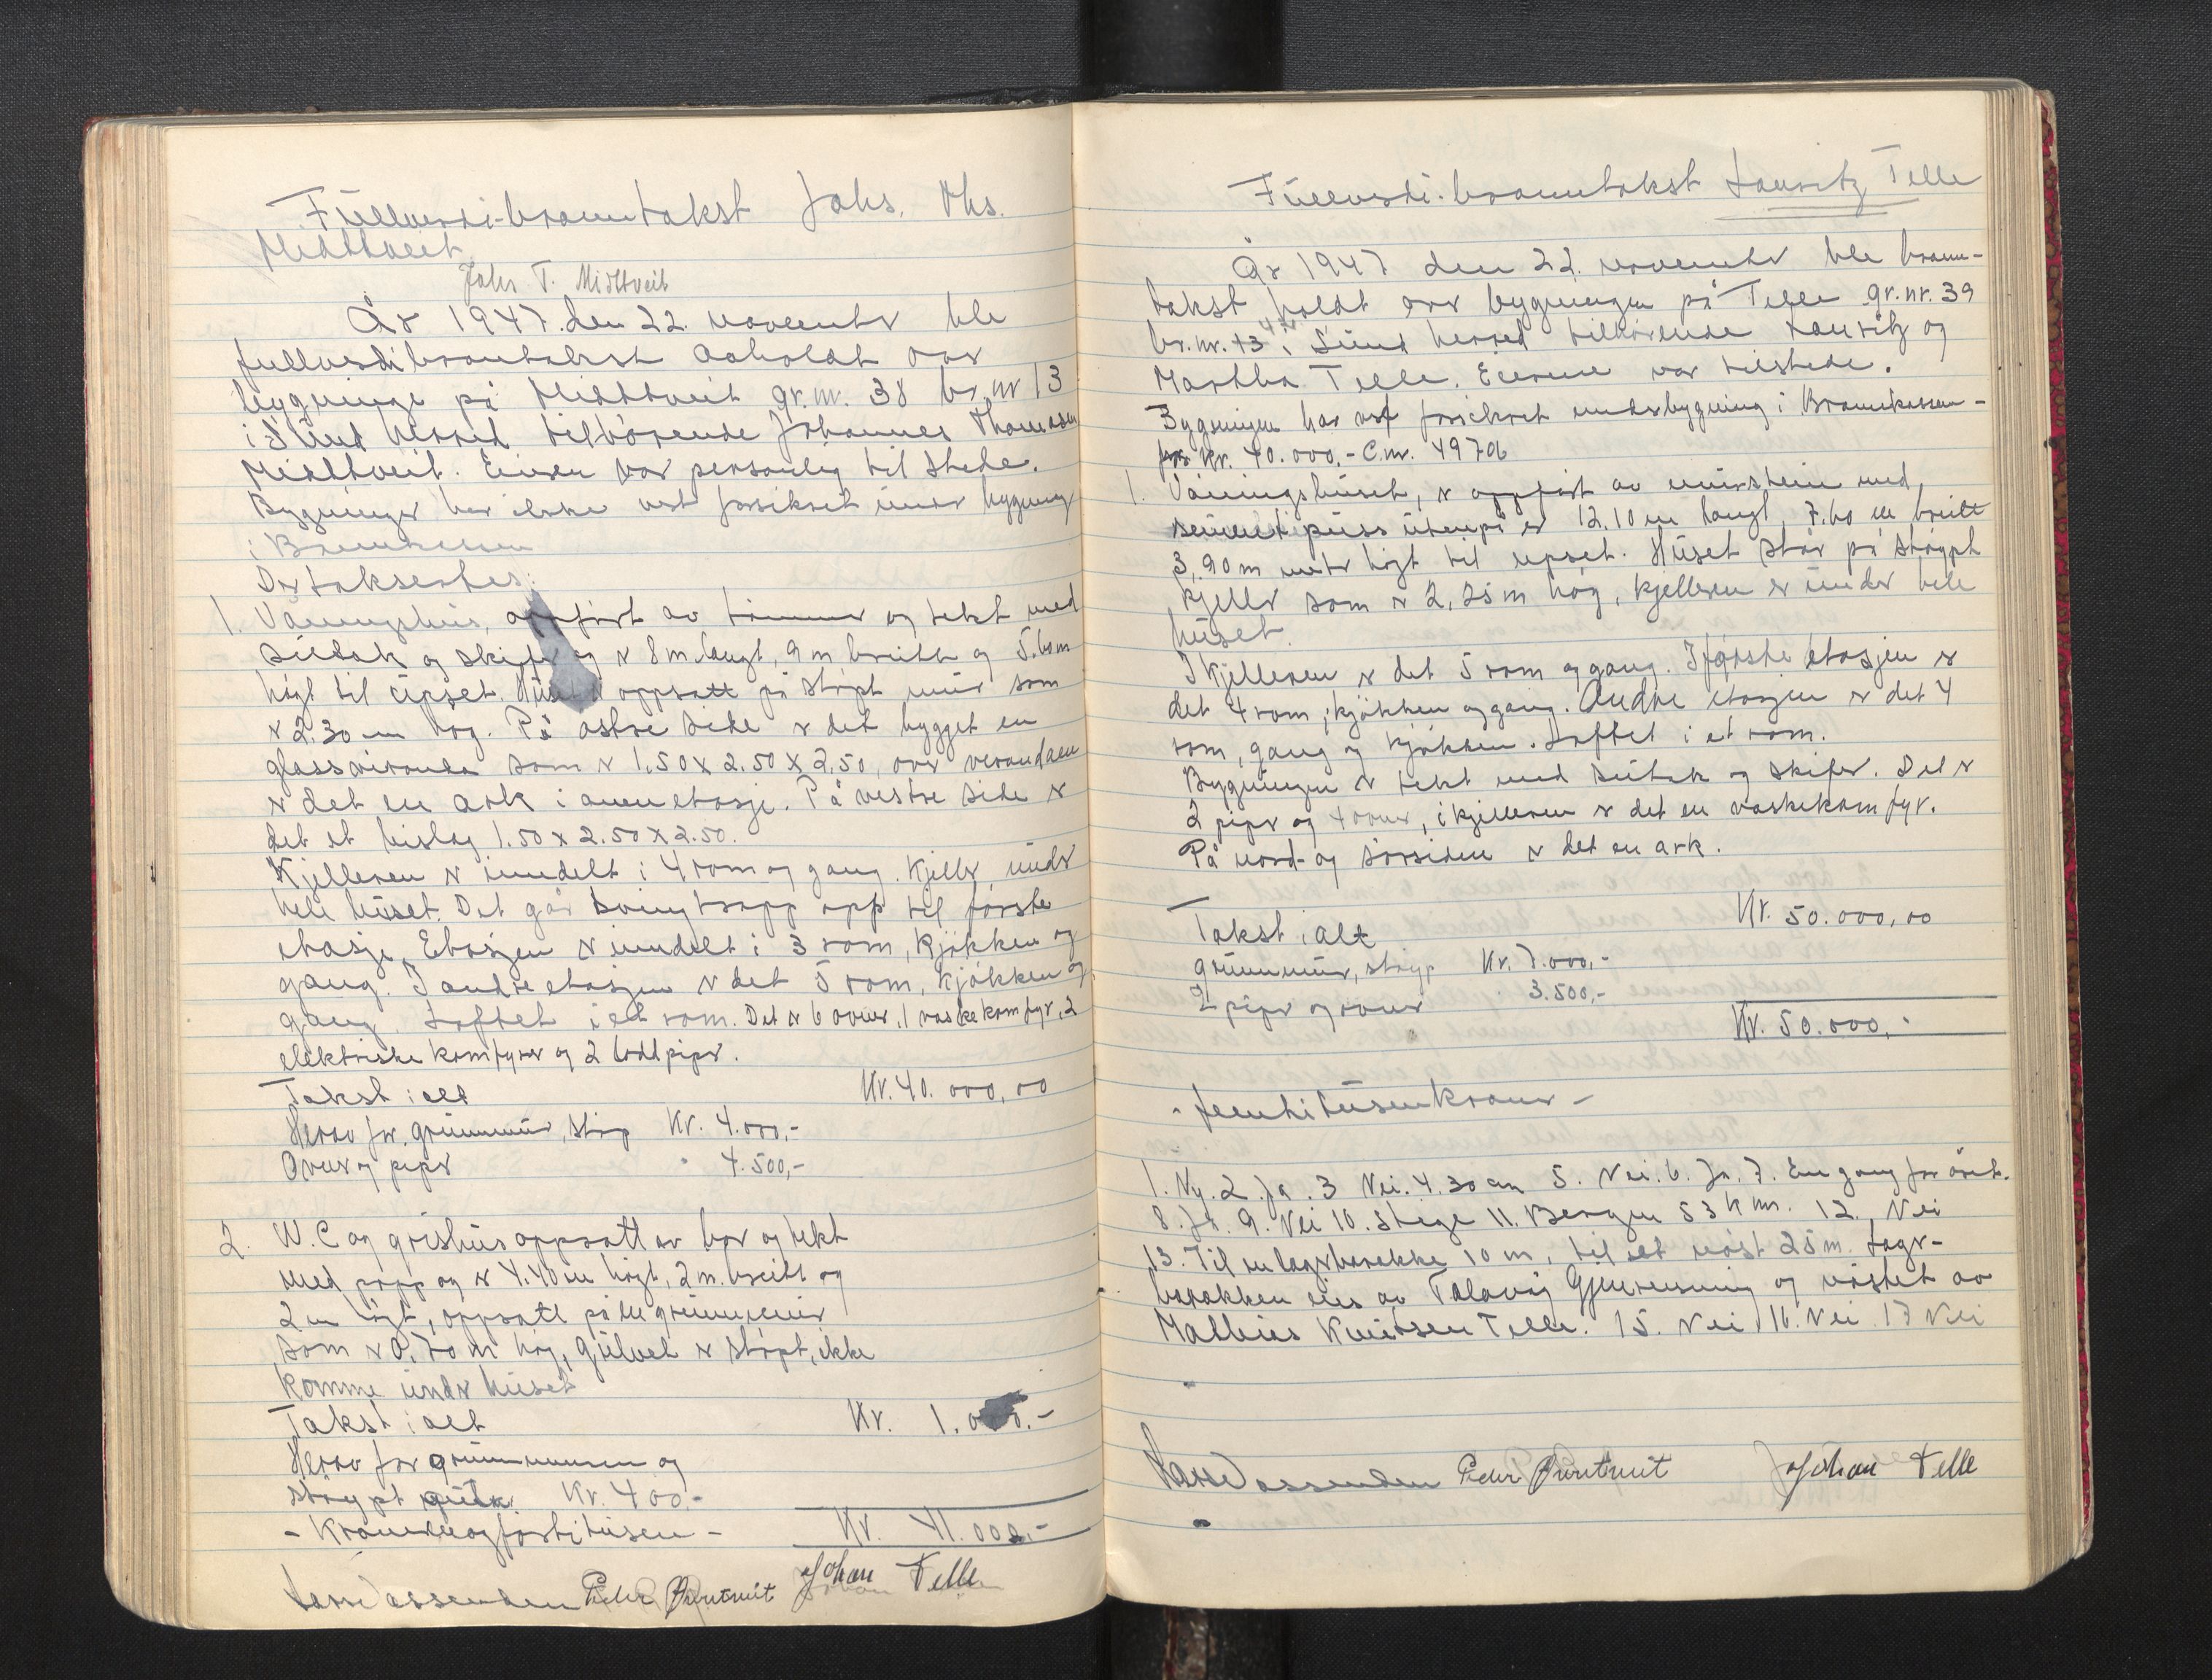 Fullverdi-branntakst Johs. Ths.
Midttveit
Johs T. Midttveit
År 1947. den 22. november ble
fullverdibranntakst avholdt over
bygninge på Midttveit gr.nr. 38 br.nr 13
i Sund herred tilhørende Johannes Thomasen
Midttveit. Eieren var personlig til stede.
Bygninger har ikke vert forsikret under bygning
i Brannkassen
Der taksertes:
1. Våningshus, oppført av tømmer og tekt med
sutak og skifer og er 8 m langt, 9 m breitt og 5.60 m
høgt til upset. Huset er oppsatt på støpt mur som
er 2.30 m høg. På østre side er det bygget en
glassveranda som er 1,50 x 2.50 x 2,50, over verandaen
er det en ark i annen etasje. På vestre side er
det et bislag 1.50 x 2.50 x 2.50.
Kjelleren er inndelt i 4 rom og gang. Kjeller under
hele huset. Det går svingtrapp opp til første
etasje. Etasjen er inndelt i 3 rom, kjøkken og
gang. I andre etasjen er det 5 rom, kjøkken og
gang. Loftet i et rom. Det er 6 ovner, 1 vaskekomfyr, 2
elektriske komfyrer og 2 loddpiper.
Takst i alt Kr. 40.000,00
Herav for grunnmur, støp Kr. 4.000,-
Ovner og piper " 4.500,-
2. W.C og grishus oppsatt av bor og tekt
med papp og er 4.40 m høgt, 2 m. breitt og
2 m høgt, oppsatt på en grunnmur
som er 0,70 m høg, Gulvet er støpt, ikke
komme under huset
Takst i alt Kr. 1.000.-
Herav for grunnmuren og
støypt gulv Kr. 400.-
Kr. 41.000.-
- Kroner en og førti tusen -
Lars Vassenden Peder Johan Telle
Fullverdi-branntakst Lauritz Telle
År 1947 den 22. november ble brann-
takst holdt over bygningen på Telle gr.nr. 39
br.nr. 43 i Sund herred tilhørende Lauritz og
Martha Telle. Eierne var tilstede.
Bygningen har vert forsikret under bygning i Brannkassen -
for Kr. 40.000.- C.nr. 4970b
1. Våningshuset, er oppført av murstein med,
sement puss utenpå er 12.10 m langt, 7.60 m breitt
3,90 m meter høgt til upset. Huset står på støypt
kjeller som er 2,25 m høg, kjelleren er under hele
huset.
I kjelleren er det 5 rom og gang. I første etasjen er
det 4 rom, kjøkken og gang. Andre etasjen er det 4
rom, gang og kjøkken. Loftet i et rom.
Bygningen er tekt med sutak og skifer. Det er
2 piper og 4 ovner, i kjelleren er det en vaskekomfyr.
På nord- og sørsiden er det en ark.
Takst i alt Kr. 50.000,00
grunnmur, støyp Kr. 7.000,-
2 piper og ovner " 3.500,-
Kr. 50.000.-
- femti tusen kroner -
1. Ny. 2 Ja. 3 Nei. 4. 30 cm 5. Nei. 6. Ja. 7. En gang for året.
8. Ja. 9. Nei 10. Stege 11. Bergen 53 km. 12. Nei
13. Til en lagerbarakke 10 m, til et nøst 25 m. Lager-
barakken eies av Talavåg Gjenreisning og nøstet av
Mathias Knutsen Telle. 15. Nei 16. Nei 17 Nei
Lars Vassenden Peder Johan Telle